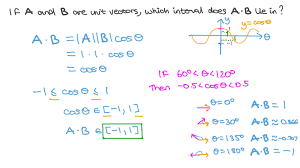 IF A and B are unit vectors, which interval does A·B lie in?
A·B = |A||B|cosθ
= 1·1·cosθ
= cosθ
-1 ≤ cosθ ≤ 1
cosθ ∈ [-1, 1]
A·B ∈ [-1, 1]
y
y = cosθ
1
θ
IF 60° < θ < 120°
Then -0.5 < cosθ < 0.5
θ = 0° A·B = 1
θ = 30° A·B ≈ 0.866
θ = 135° A·B ≈ -0.707
θ = 180° A·B = -1